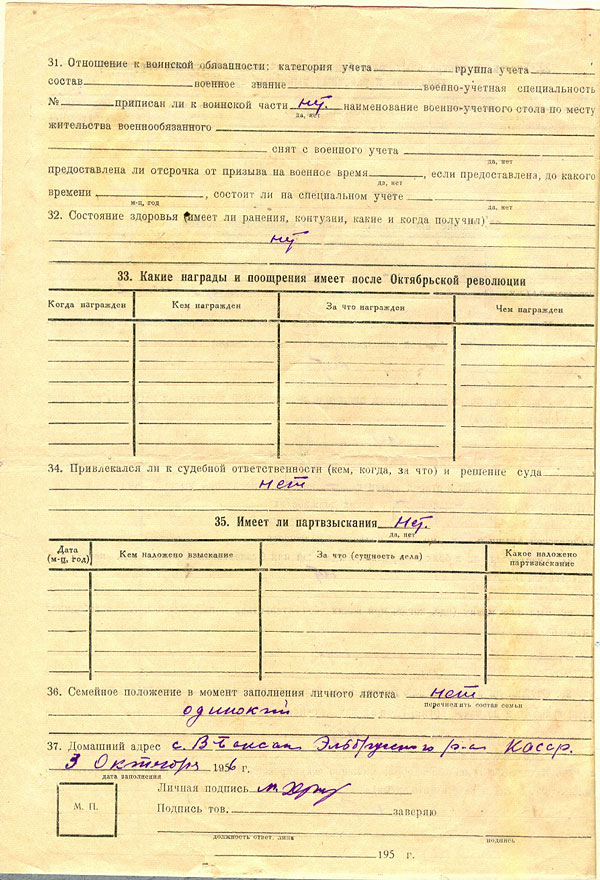 31. Отношение к воинской обязанности: категория учета группа учета
состав военное звание военно-учетная специальность
№ приписан ли к воинской части нет. наименование военно-учетного стола по месту
да, нет
жительства военнообязанного
снят с военного учета
да, нет
предоставлена ли отсрочка от призыва на военное время , если предоставлена, до какого
да, нет
времени , состоит ли на специальном учете
м-ц, год да, нет
32. Состояние здоровья (имеет ли ранения, контузии, какие и когда получил)
нет
33. Какие награды и поощрения имеет после Октябрьской революции
Когда награжден Кем награжден За что награжден Чем награжден
34. Привлекался ли к судебной ответственности (кем, когда, за что) и решение суда
нет
35. Имеет ли партвзыскания нет.
да, нет
Дата (м-ц, год) Кем наложено взыскание За что (сущность дела) Какое наложено партвзыскание
36. Семейное положение в момент заполнения личного листка нет
перечислить состав семьи
одинокий
37. Домашний адрес с. В-Баксан Эльбрусского р-а Касср.
3 Октября 1956 г.
дата заполнения
Личная подпись
М. П.
Подпись тов. заверяю
должность ответ. лица подпись
195 г.